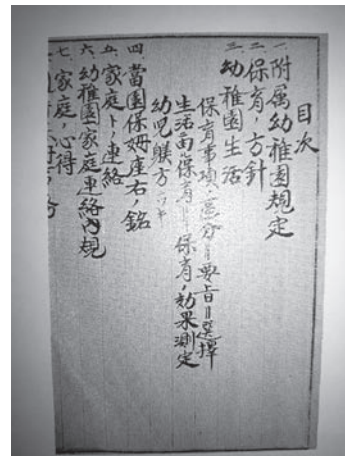 目次
一、附属幼稚園規定
二、保育ノ方針
三、幼稚園生活
保育事項ノ區分‖要旨‖選擇
生活面ノ保育‖保育ノ効果測定
幼児躾方
四、當園保姆座右ノ銘
五、家庭トノ連絡
六、幼稚園家庭連絡内規
七、家庭ノ心得